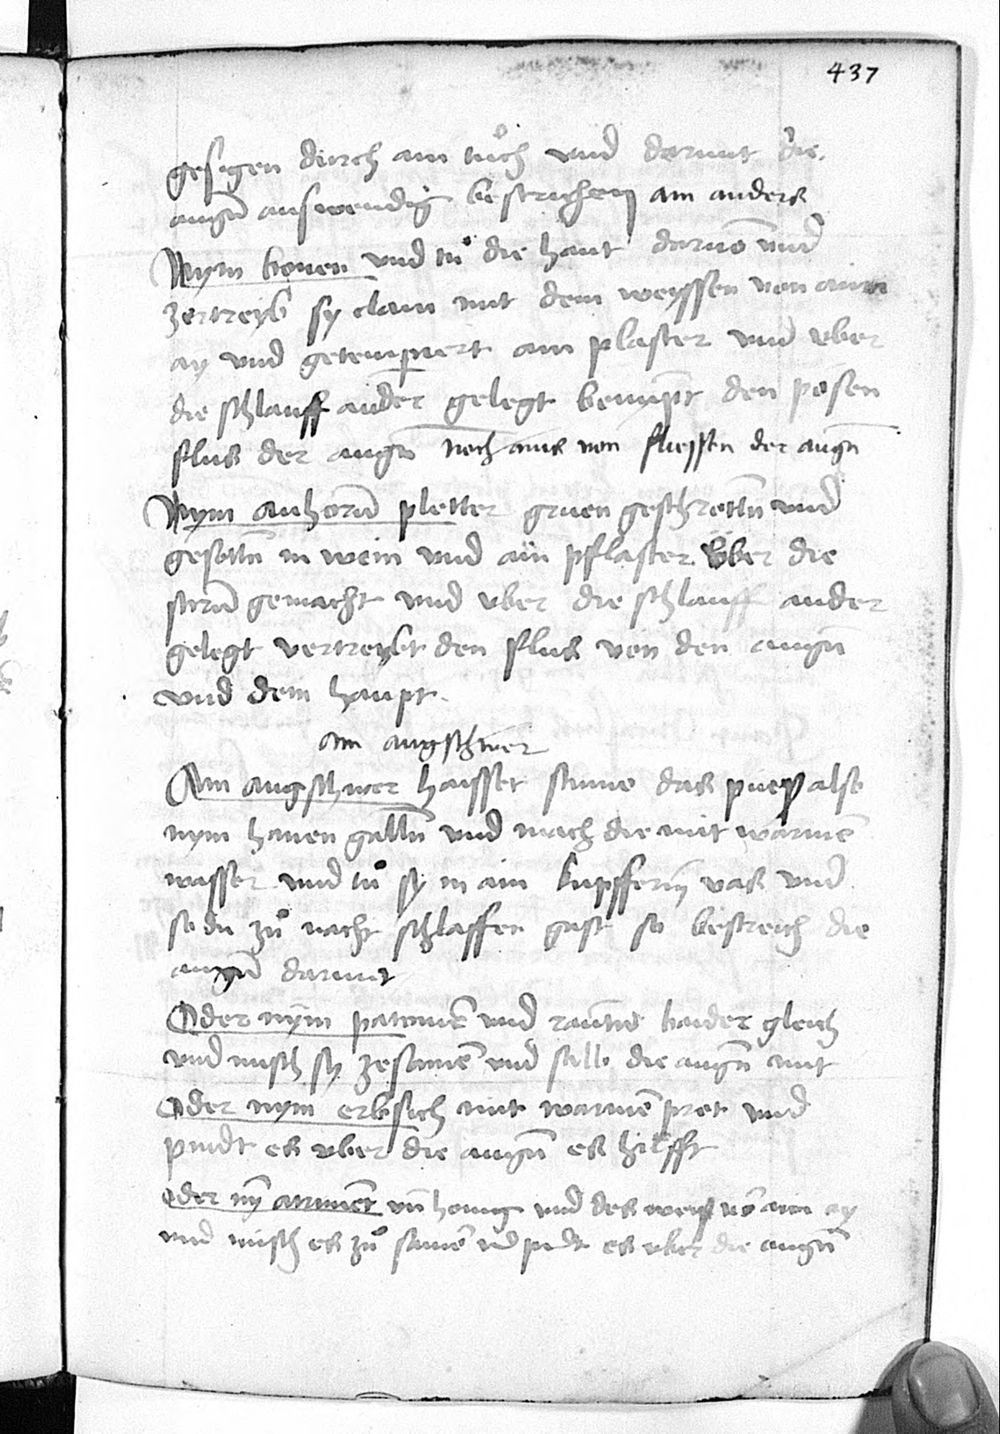 437
gesigen durch ain tuͦch und darmit die
augn̄ auswendig bestrichen ain anders
Nym bonen und tuͦ die haut daruō und
zertreyb sy clain mit dem weyssen von aim
ay und getempriert ain plaster und uber
die schlauff ander gelegt benympt den posen
flus der augn̄ noch ains von fliessen der augn̄
Nym anhorn̄ pletter gruen geschrottn̄ und
gesottn̄ in wein und ain pflaster uber die
stirn̄ gemacht und uber die schlauff ander
gelegt vertreybt den flus von den augn̄
und dem haupt
ain augschwer
Ain augschwer haisset das puess also
nym hanen galln̄ und mach die mit warmē
wasser und tuͦ sy in ain kupfferin vas und
so du zuͦ nacht schlaffen gast so bestreich die
augn̄ darmit
Oder nym und baider gleich
und misch sy zesamē und salb die augn̄ mit
Oder nym mit warmē prot und
pindt es uber die augn̄ es hilfft
Oder nym̄ un̄ honig und des weys vō aim ay
und misch es zuͦ samē und pindt es uber die augn̄